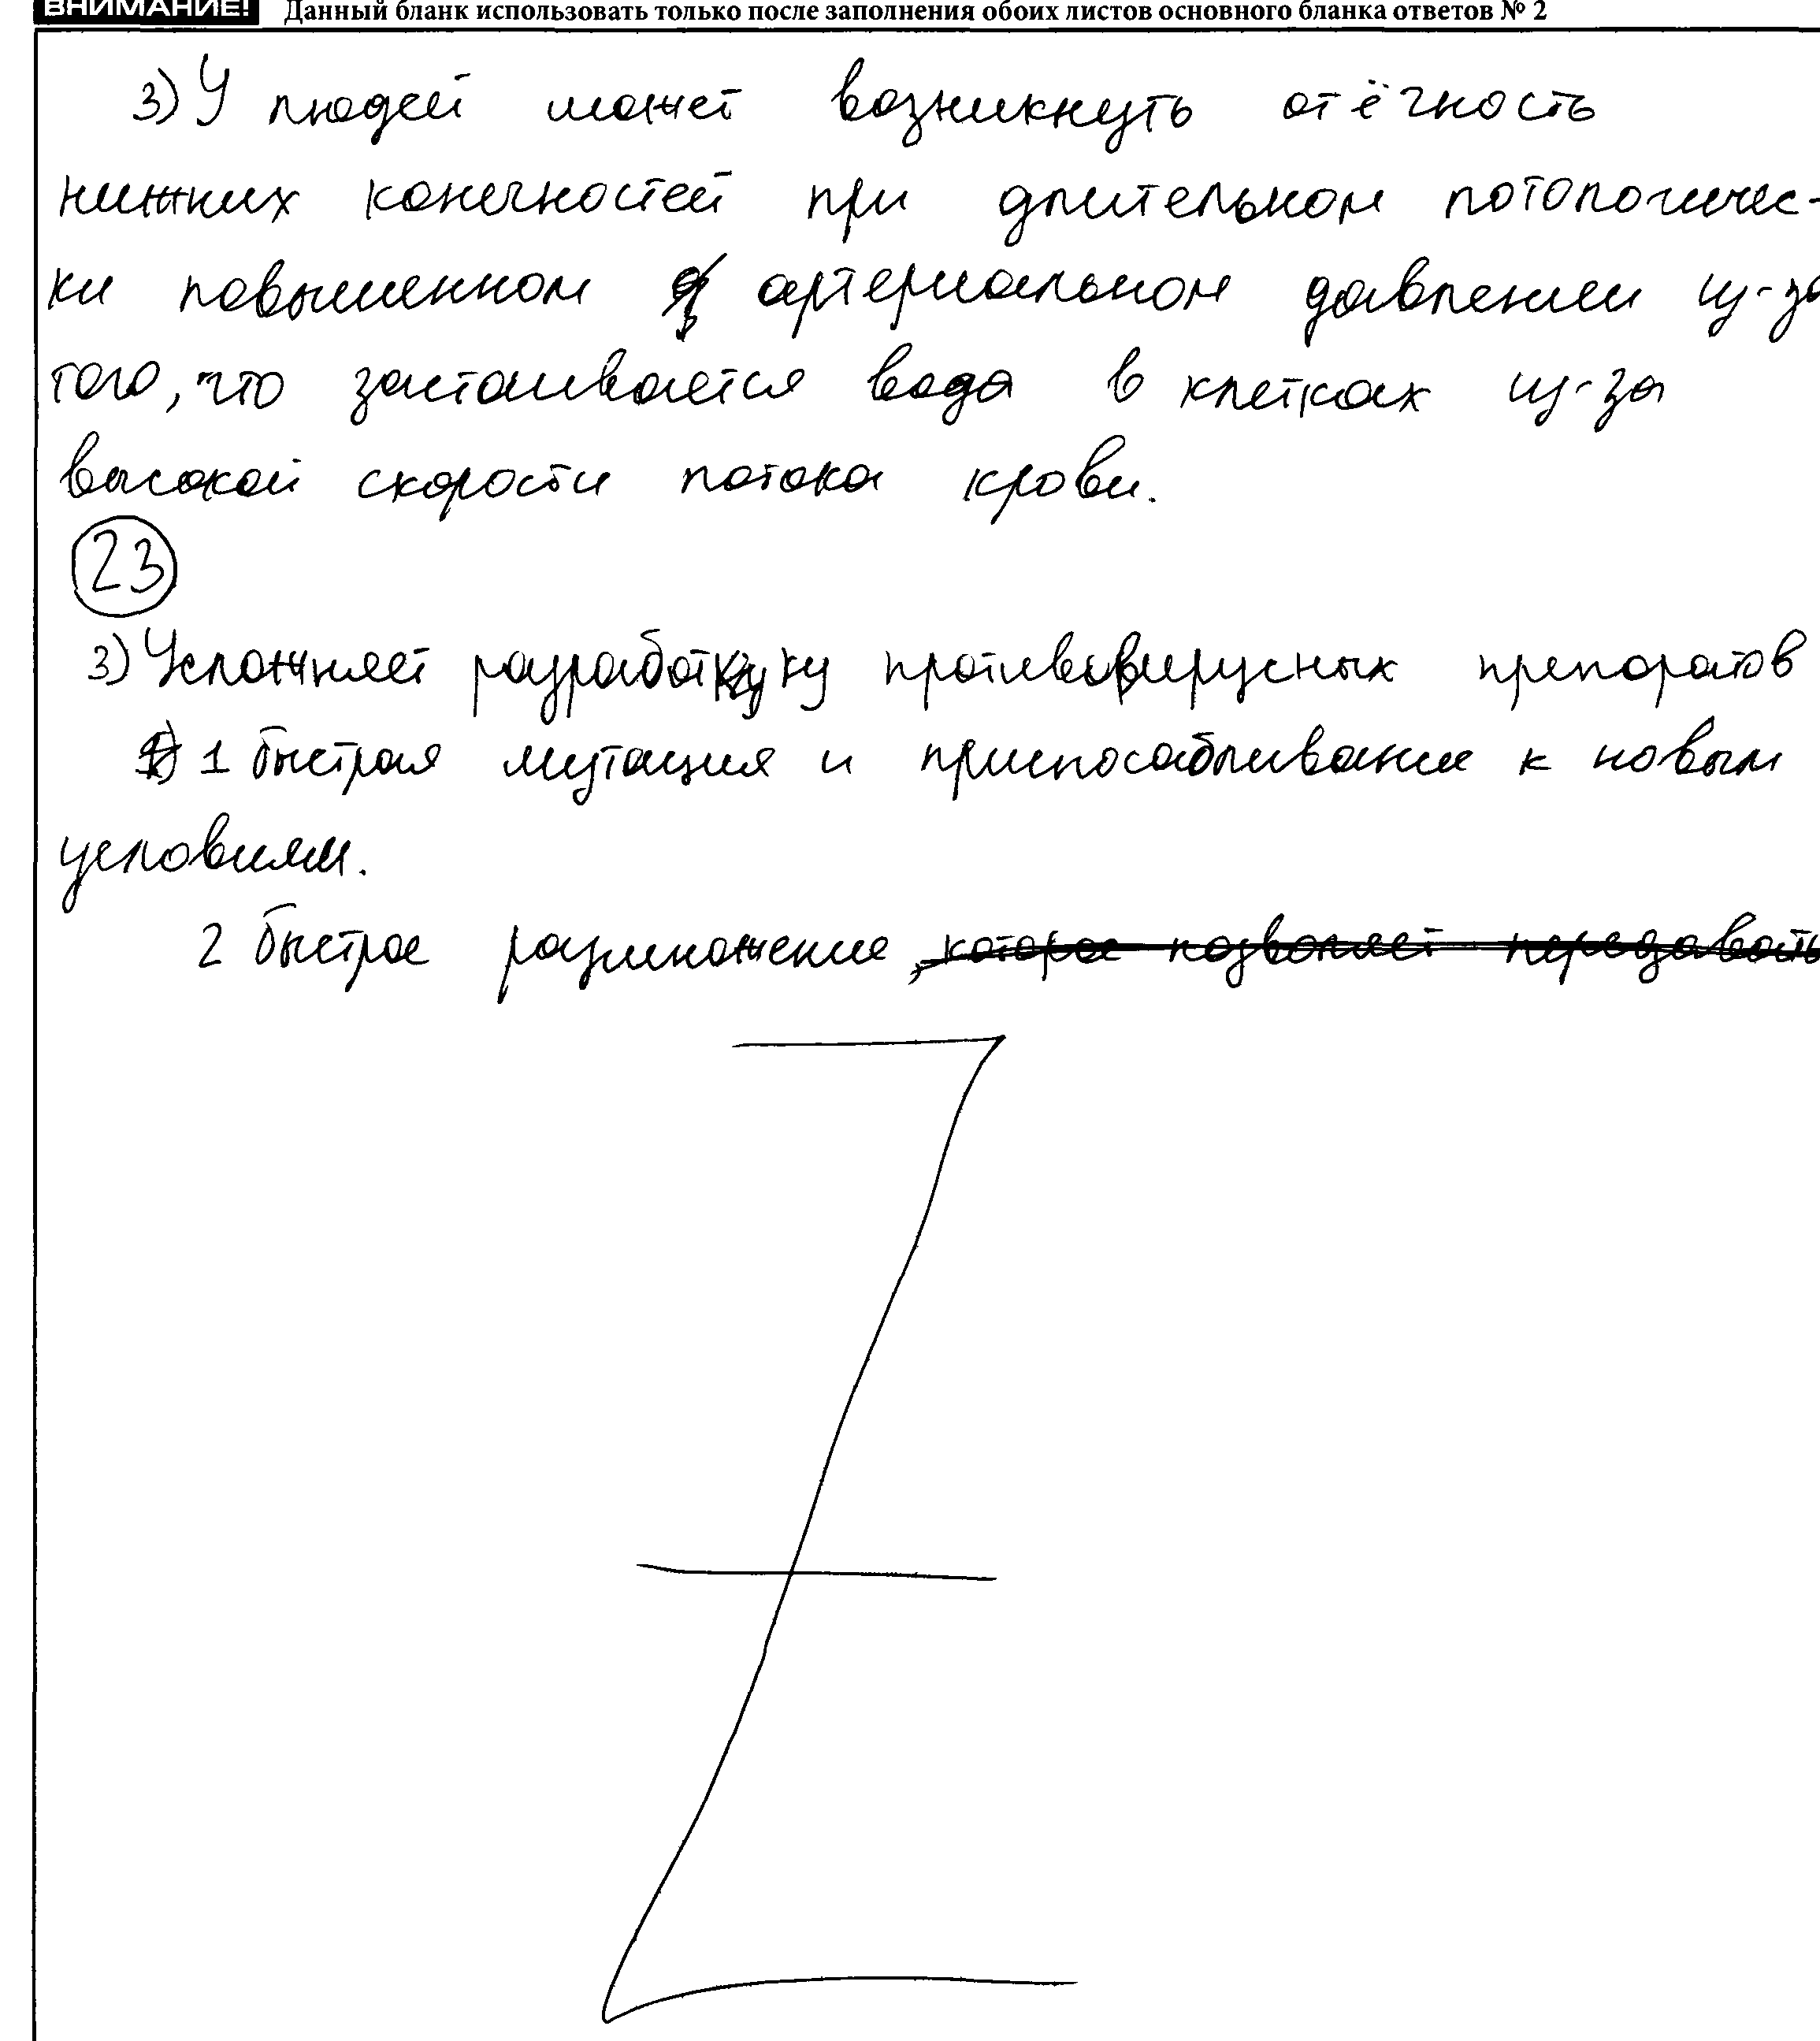 ВНИМАНИЕ! Данный бланк использовать только после заполнения обоих листов основного бланка ответов № 2
3) У людей может возникнуть отёчность
нижних конечностей при длительном потологичес-
ки повышенном артериальном давлении из-за
того, что застаивается вода в клетках из-за
высокой скорости потока крови.
23
3) Усложняет разработку противовирусных препоратов
1 быстрая мутация и приспосабливание к новым
условиям.
2 быстрое размножение, которое позволяет передавать